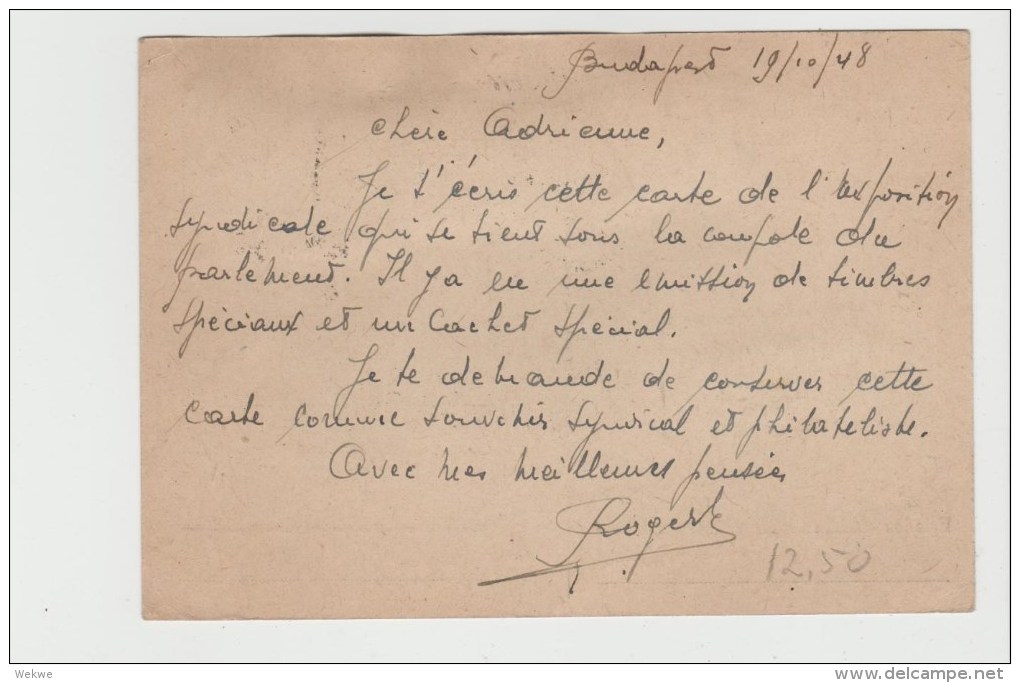 Budapest 19/10/48
Chère Adrienne,
Je t'écris cette carte de l'exposition
syndicale qui se tient sous la coupole du
parlement. Il y a eu une émission de timbres
spéciaux et un cachet spécial.
Je te demande de conserver cette
carte comme souvenir syndical et philateliste.
Avec mes meilleures pensées
Roger
12,50
Wekwe
©delcampe.net